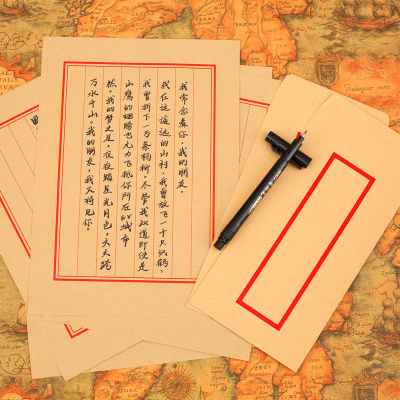 我常念着你,我的朋友。
我在这遥远的山村,我曾放飞一千只纸鹤,
我曾折下一万条杨柳,尽管我知道即使是
山鹰的翅膀也无力飞抵你所在的城市
然,我的梦之足,夜夜踏星光月色,天天踏
万水千山,我的朋友,我又将见你。